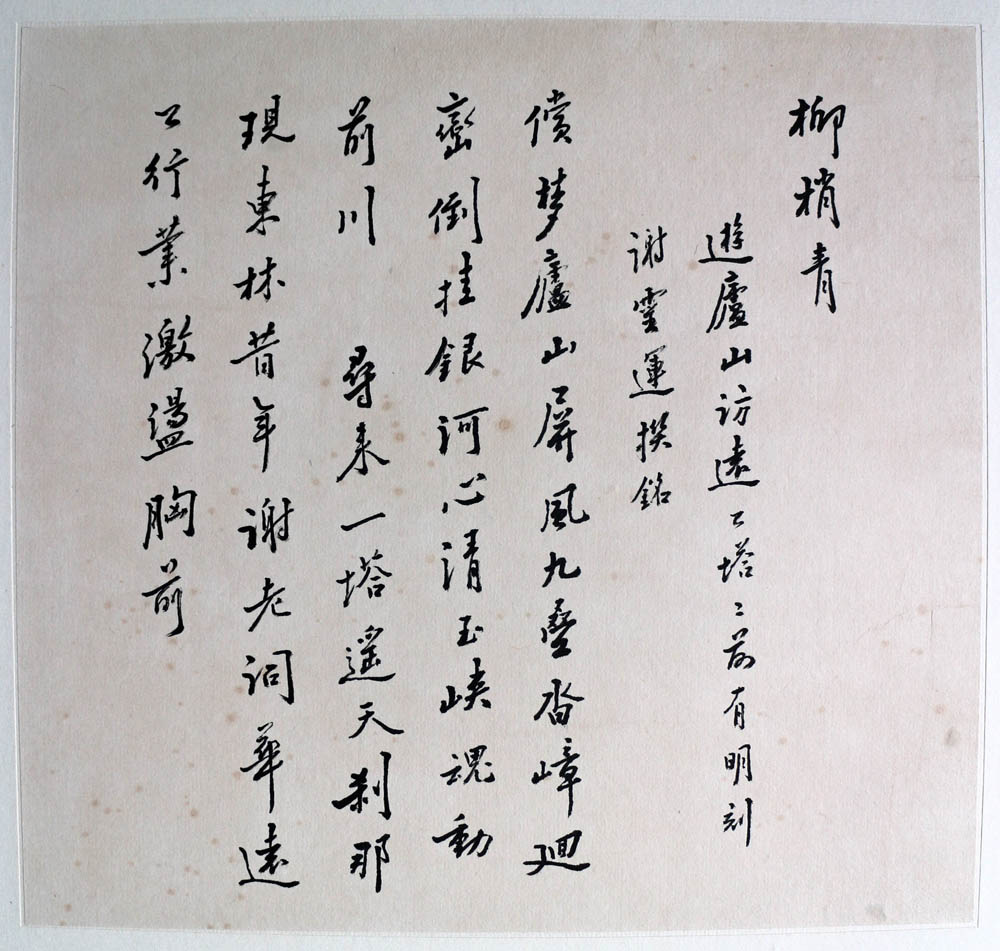 柳梢青
遊廬山訪遠公塔〻前有明刻
謝靈運撰銘
償梦廬山屏風九疊沓嶂迴
巒倒挂銀河心清玉峡魂動
前川 尋来一塔遥天刹那
現東林昔年謝老词華遠
公行業激盪胸前